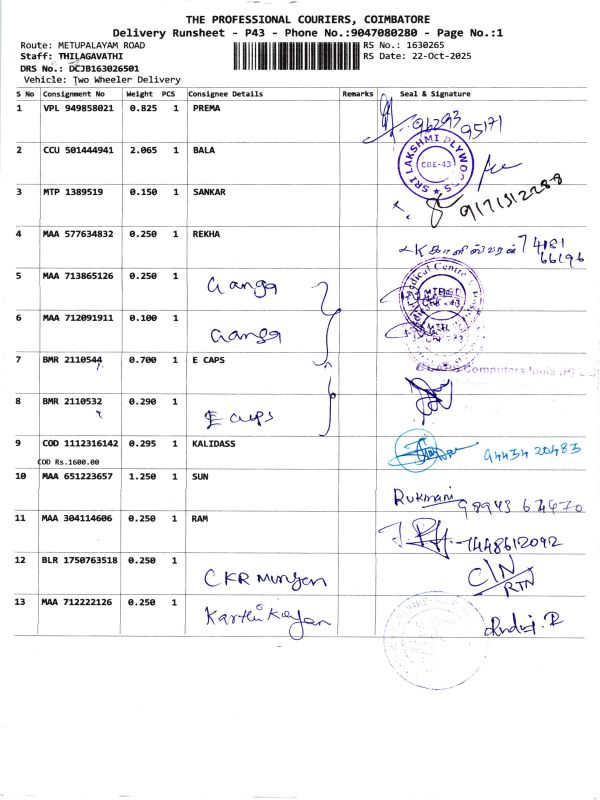 THE PROFESSIONAL COURIERS, COIMBATORE
Delivery Runsheet - P43 - Phone No.:9047080280 - Page No.:1
Route: METUPALAYAM ROAD RS No.: 1630265
Staff: THILAGAVATHI RS Date: 22-Oct-2025
DRS No.: DCJB163026501
Vehicle: Two Wheeler Delivery
S No Consignment No Weight PCS Consignee Details Remarks Seal & Signature
1 VPL 949858021 0.825 1 PREMA
96293 95171
2 CCU 501444941 2.065 1 BALA
SRI LAKSHMI PLYWOODS CBE-43
3 MTP 1389519 0.150 1 SANKAR
4 MAA 577634832 0.250 1 REKHA
5 MAA 713865126 0.250 1 Ganga
6 MAA 712091911 0.100 1 Ganga
7 BMR 2110544 0.700 1 E CAPS
Computers India (P)
8 BMR 2110532 0.290 1 E caps
9 COD 1112316142 0.295 1 KALIDASS 94434 20483
COD Rs.1600.00
10 MAA 651223657 1.250 1 SUN
Rukmani 98943 67470
11 MAA 304114606 0.250 1 RAM
7448612092
12 BLR 1750763518 0.250 1 CKR Murgan
C/N
RTN
13 MAA 712222126 0.250 1 Karthikeyan